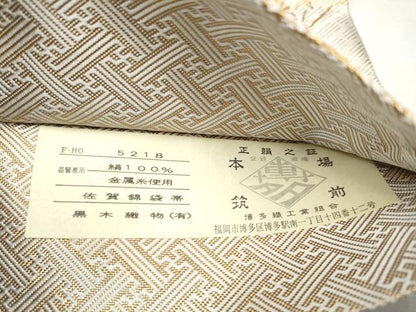 F-HO 5218
品質表示 絹100%
金属糸使用
佐賀錦袋帯
黒木織物(有)
正絹之証
本場
筑前
博多織工業組合
福岡市博多区博多駅南一丁目十四番十二号